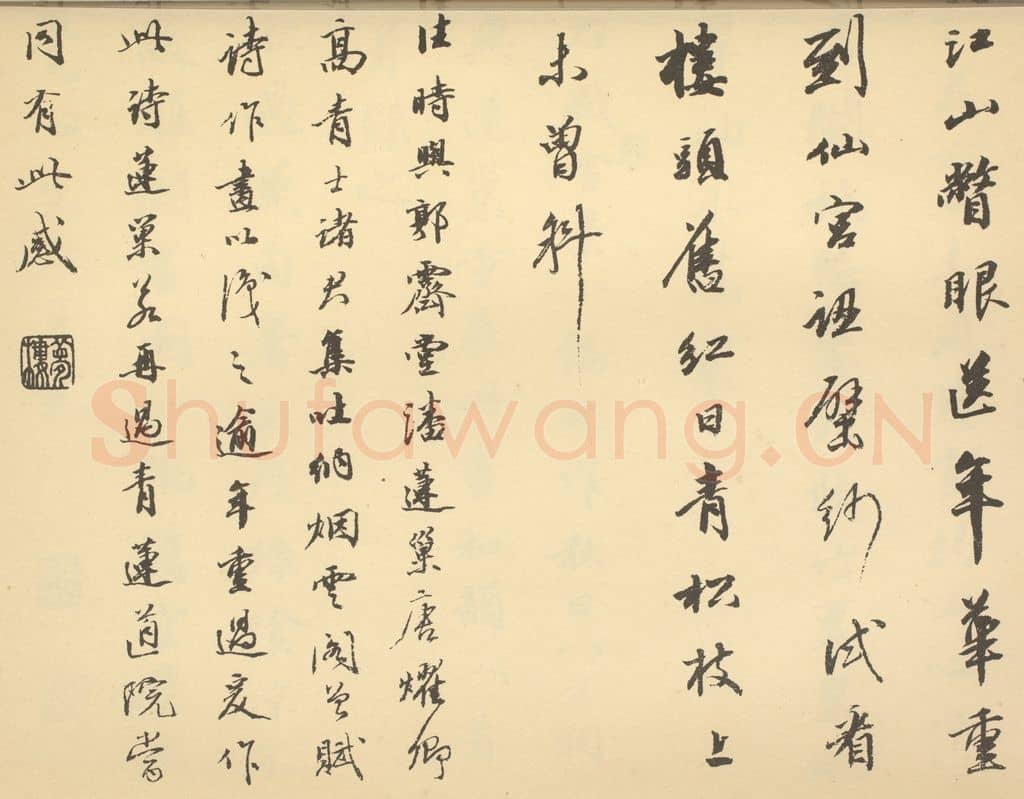 江山瞥眼送年華重
到仙宮詛壁紗試看
樓頭舊紅日青松枝上
未曾斜
往時與郭霽堂潘蓮巢唐燿卿
高青士諸君集吐納烟雲閣並賦
詩作畫以識之逾年重過爰作
此詩蓮巢若再過青蓮道院當
同有此感
夢樓
Shufawang.CN